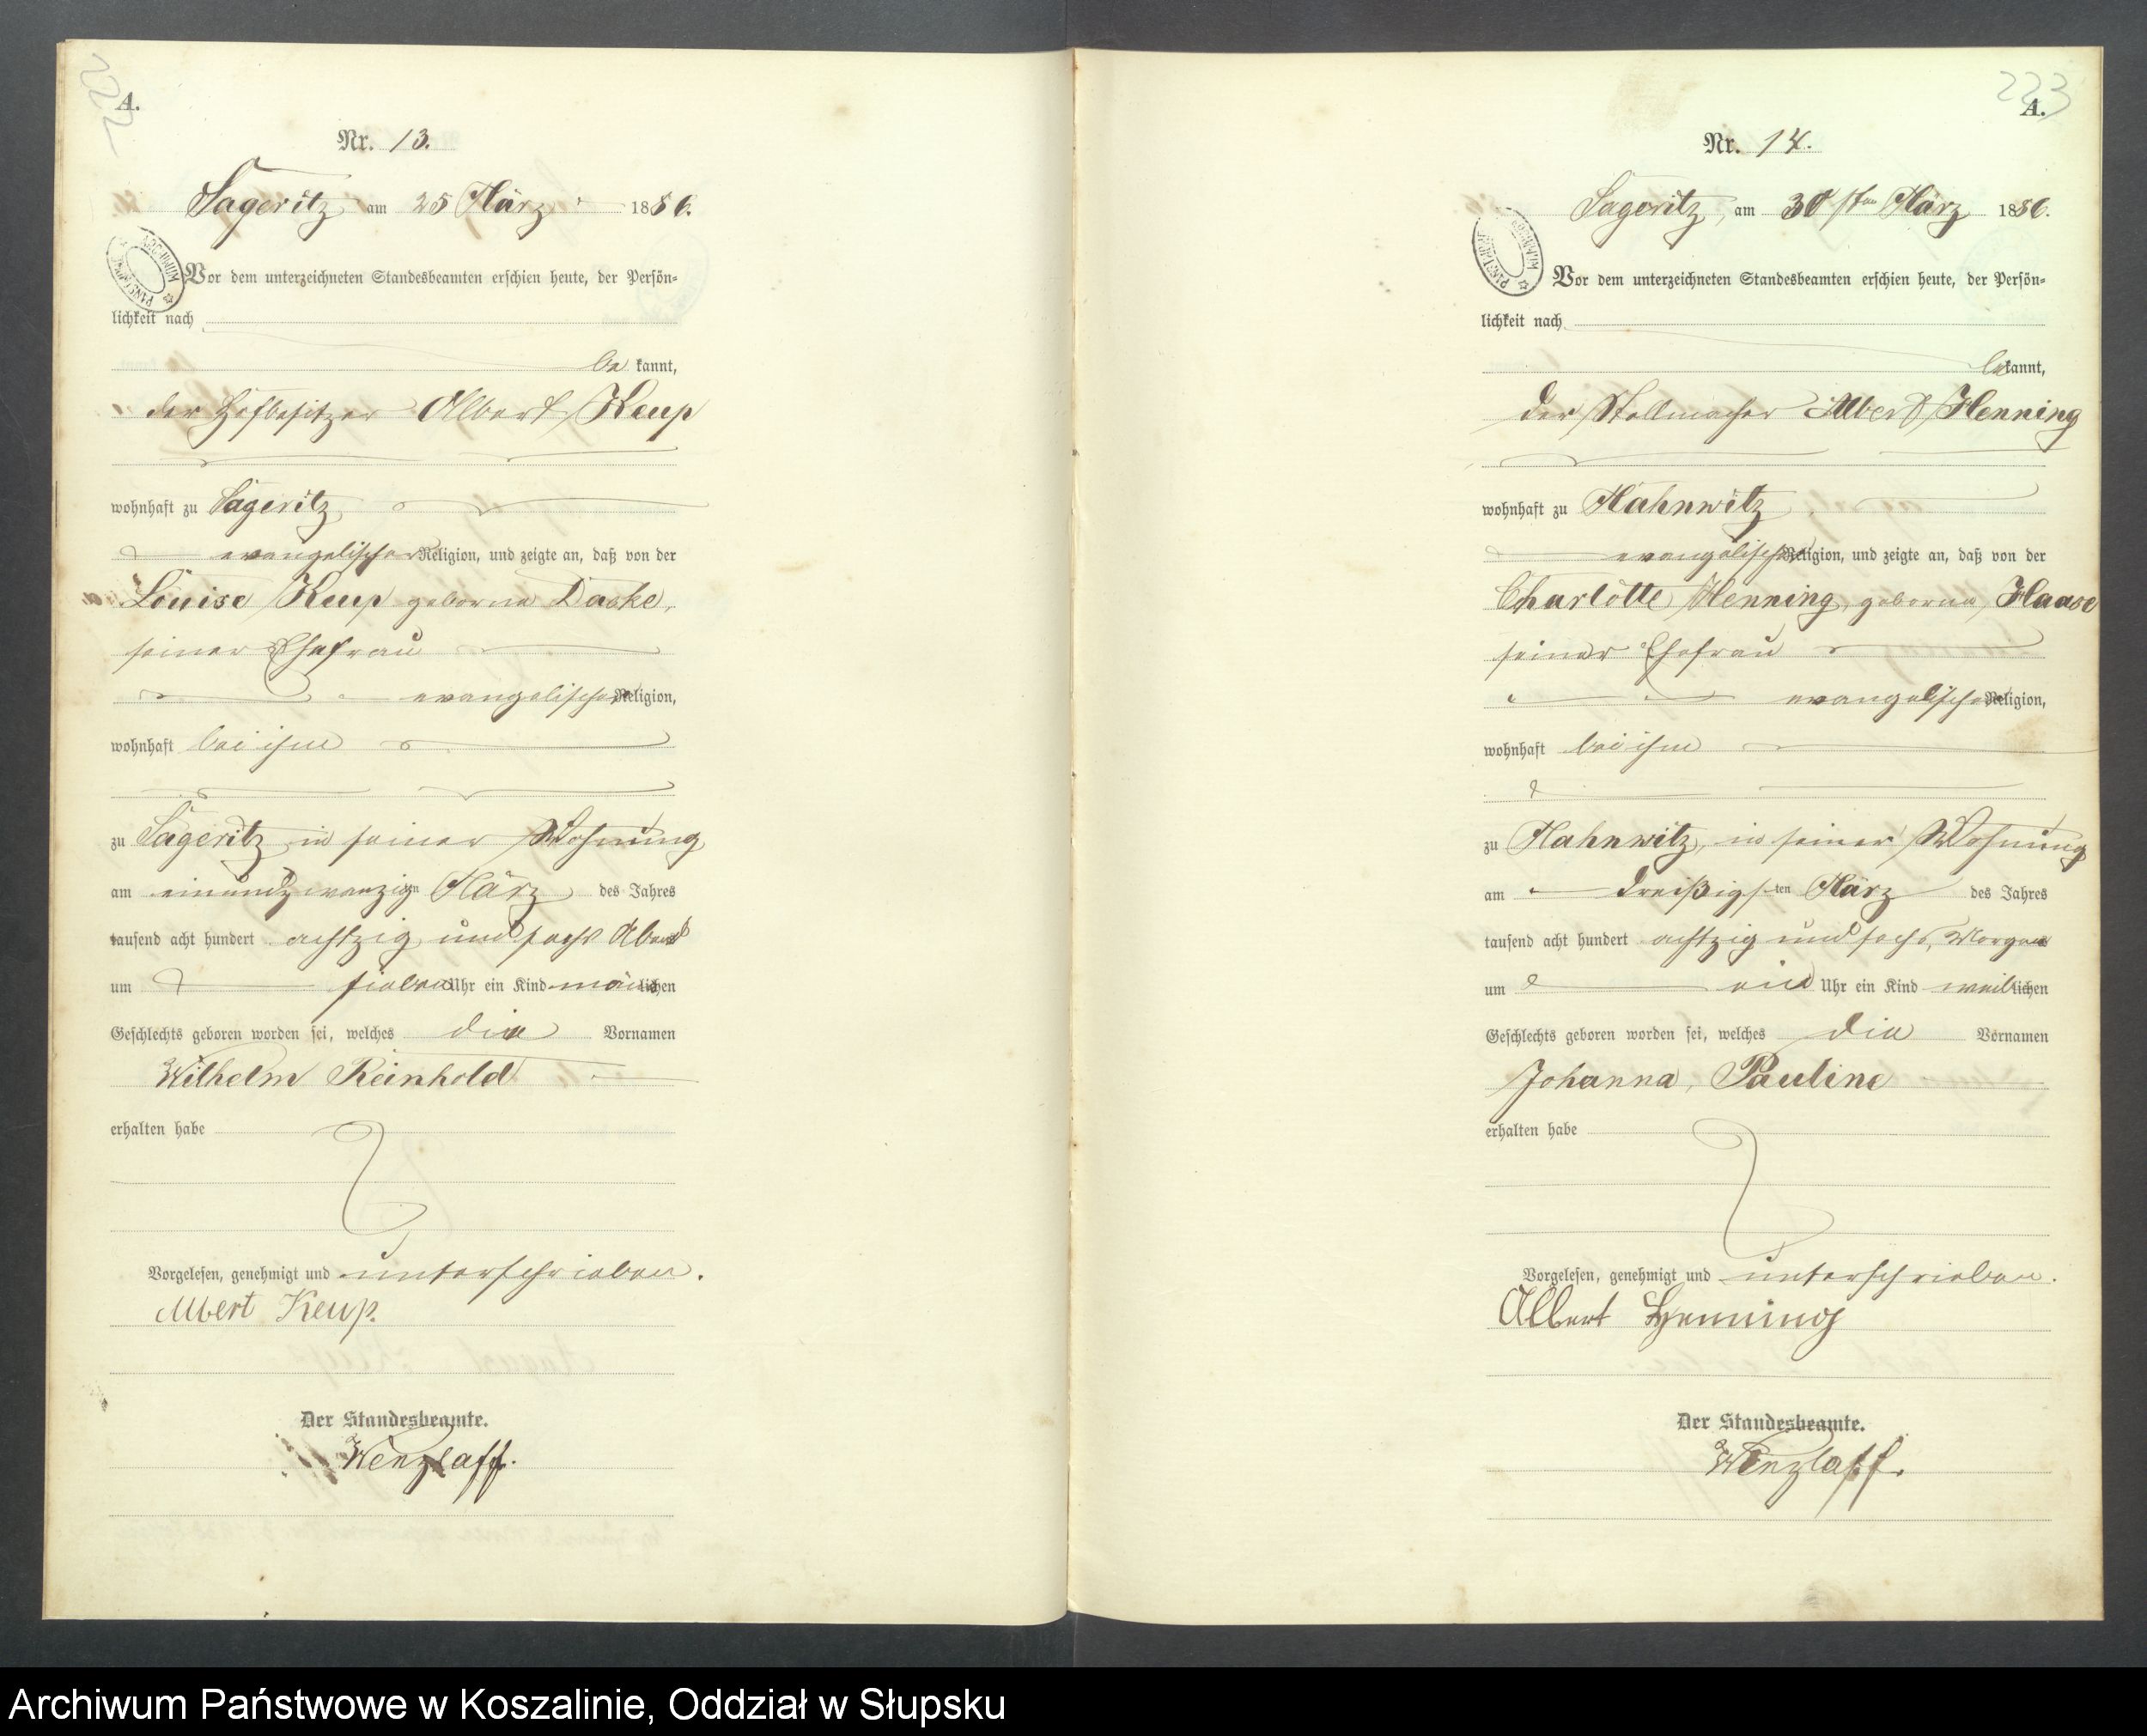 222
A.
Nr. 13.
Sageritz, am 25 März 1886.
Vor dem unterzeichneten Standesbeamten erschien heute, der Persön-
lichkeit nach
be kannt,
der Hofbesitzer Albert Keup
wohnhaft zu Sageritz
evangelischer Religion, und zeigte an, daß von der
Louise Keup geborne Daske,
seiner Ehefrau
evangelischer Religion,
wohnhaft bei ihm
zu Sageritz in seiner Wohnung
am einundzwanzigsten März des Jahres
tausend acht hundert achtzig und sechs Abends
um sieben Uhr ein Kind männlichen
Geschlechts geboren worden sei, welches die Vornamen
Wilhelm Reinhold
erhalten habe
Vorgelesen, genehmigt und unterschrieben.
Albert Keup.
Der Standesbeamte.
Wenzlaff.
223
A.
Nr. 14.
Sageritz, am 30sten März 1886.
Vor dem unterzeichneten Standesbeamten erschien heute, der Persön-
lichkeit nach
bekannt,
der Stellmacher Albert Henning
wohnhaft zu Mahnwitz
evangelischer Religion, und zeigte an, daß von der
Charlotte Henning, geborne Haase
seiner Ehefrau
evangelischer Religion,
wohnhaft bei ihm
zu Mahnwitz, in seiner Wohnung
am dreißigsten März des Jahres
tausend acht hundert achtzig und sechs, Morgens
um ein Uhr ein Kind weiblichen
Geschlechts geboren worden sei, welches die Vornamen
Johanna, Pauline
erhalten habe
Vorgelesen, genehmigt und unterschrieben.
Albert Henning
Der Standesbeamte.
Wenzlaff.
Archiwum Państwowe w Koszalinie, Oddział w Słupsku